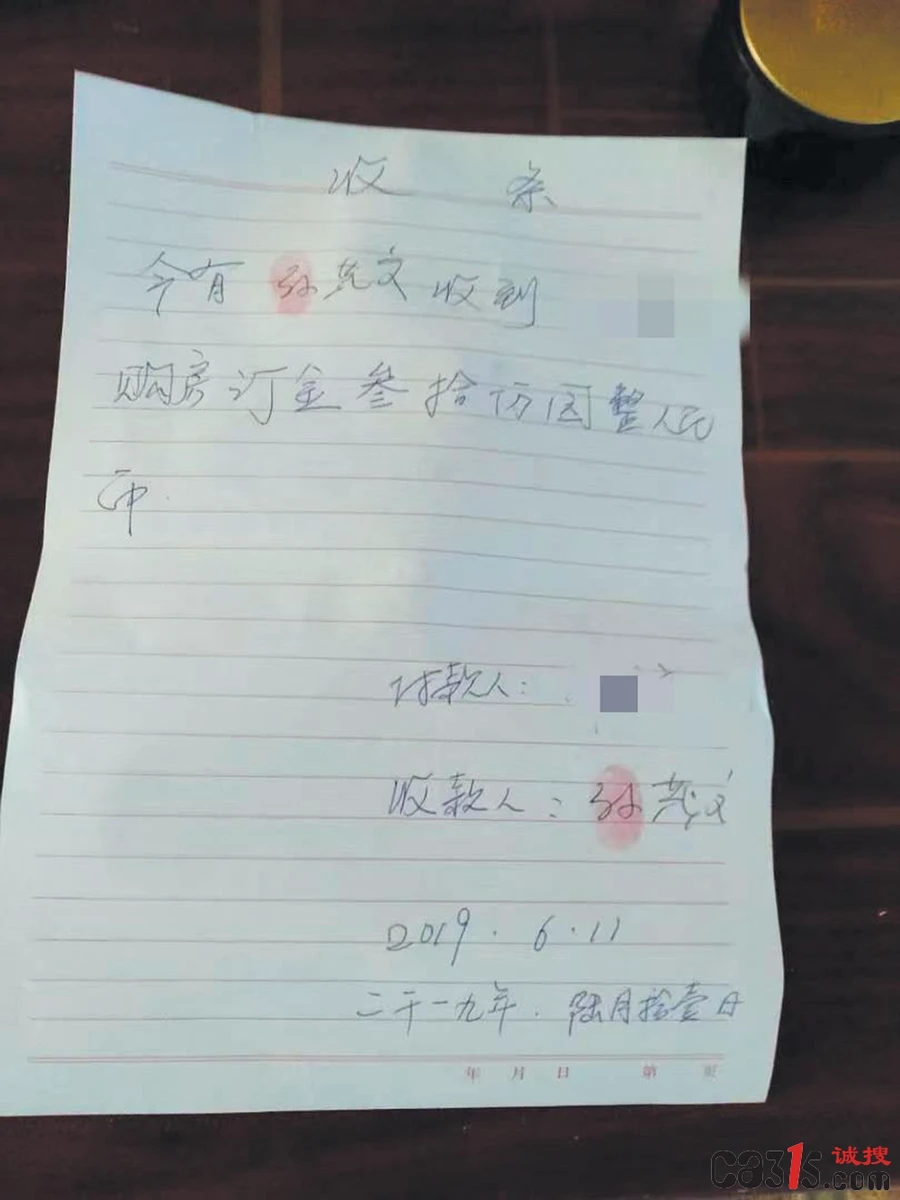 收条
今有孙茂文收到
购房订金叁拾万圆整人民
币.
付款人:
收款人:孙茂文
2019.6.11
二千一九年.陆月拾壹日
年 月 日 第 页
ca31s 诚搜
.com